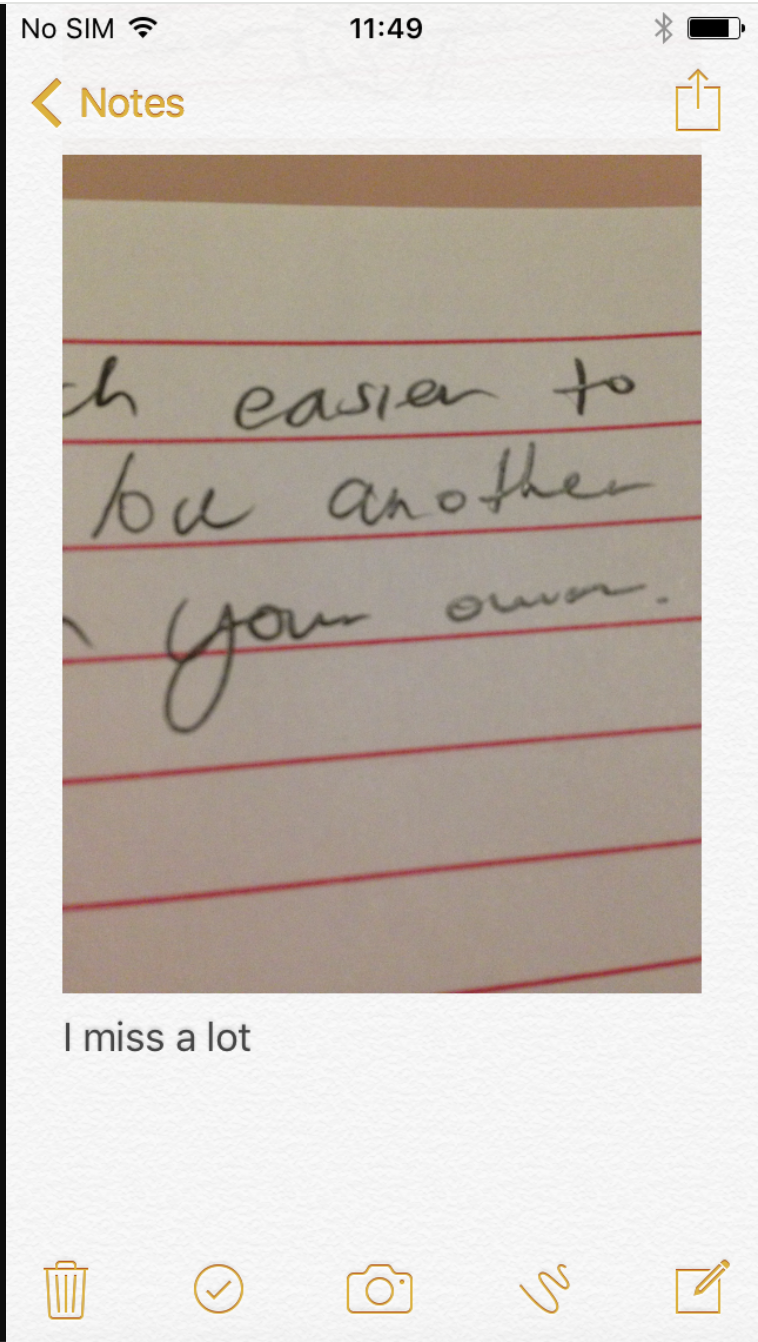 No SIM 11:49
Notes
ch easier to
be another
your own.
I miss a lot